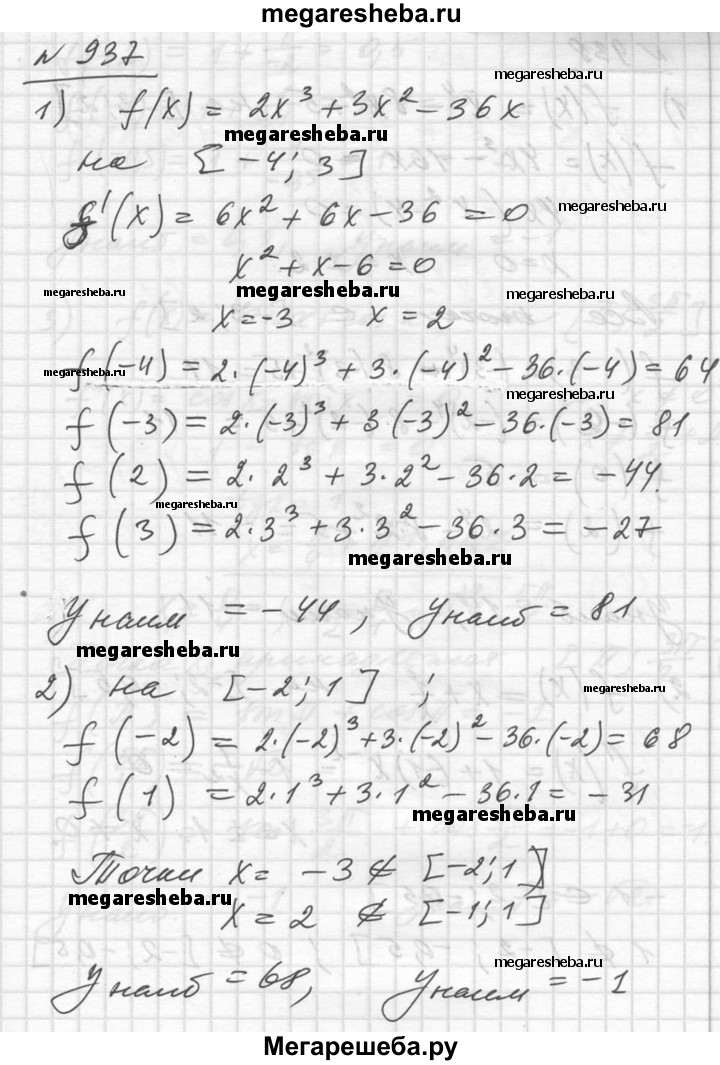 megaresheba.ru
№ 937
megaresheba.ru
1) f(x) = 2x³ + 3x² - 36x
megaresheba.ru
на [-4; 3]
f'(x) = 6x² + 6x - 36 = 0
x² + x - 6 = 0
megaresheba.ru megaresheba.ru megaresheba.ru
x = -3 x = 2
f(-4) = 2·(-4)³ + 3·(-4)² - 36·(-4) = 64
megaresheba.ru megaresheba.ru
f(-3) = 2·(-3)³ + 3(-3)² - 36·(-3) = 81
f(2) = 2·2³ + 3·2² - 36·2 = -44.
megaresheba.ru
f(3) = 2·3³ + 3·3² - 36·3 = -27
megaresheba.ru
y наим = -44, y наиб = 81
megaresheba.ru
2) на [-2; 1];
megaresheba.ru
f(-2) = 2·(-2)³ + 3·(-2)² - 36·(-2) = 68
f(1) = 2·1³ + 3·1² - 36·1 = -31
megaresheba.ru
Точки x = -3 ∉ [-2; 1]
megaresheba.ru
x = 2 ∉ [-1; 1]
megaresheba.ru
y наиб = 68, y наим = -1
Мегарешеба.ру